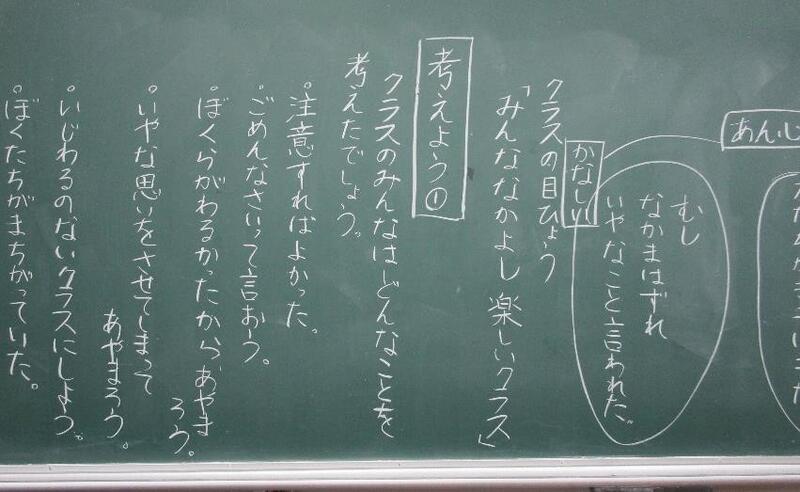 あんじ
かなしい
むし
なかまはずれ
いやなこと言われた。
クラスの目ひょう
「みんななかよし 楽しいクラス」
考えよう①
クラスのみんなはどんなことを
考えたでしょう。
・注意すればよかった。
・ごめんなさいって言おう。
・ぼくらがわるかったから、あやま
ろう。
・いやな思いをさせてしまって
あやまろう。
・いじわるのないクラスにしよう。
・ぼくたちがまちがっていた。